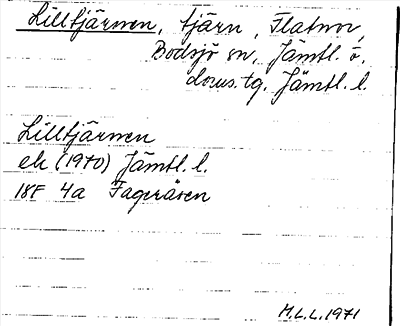 Lilltjärnen, tjärn, Flatnor,
Bodsjö sn, Jämtl. ö.
doms. tg. Jämtl. l.
Lilltjärnen
ek (1970) Jämtl. l.
18F 4a Fageråsen
M.L.L. 1971